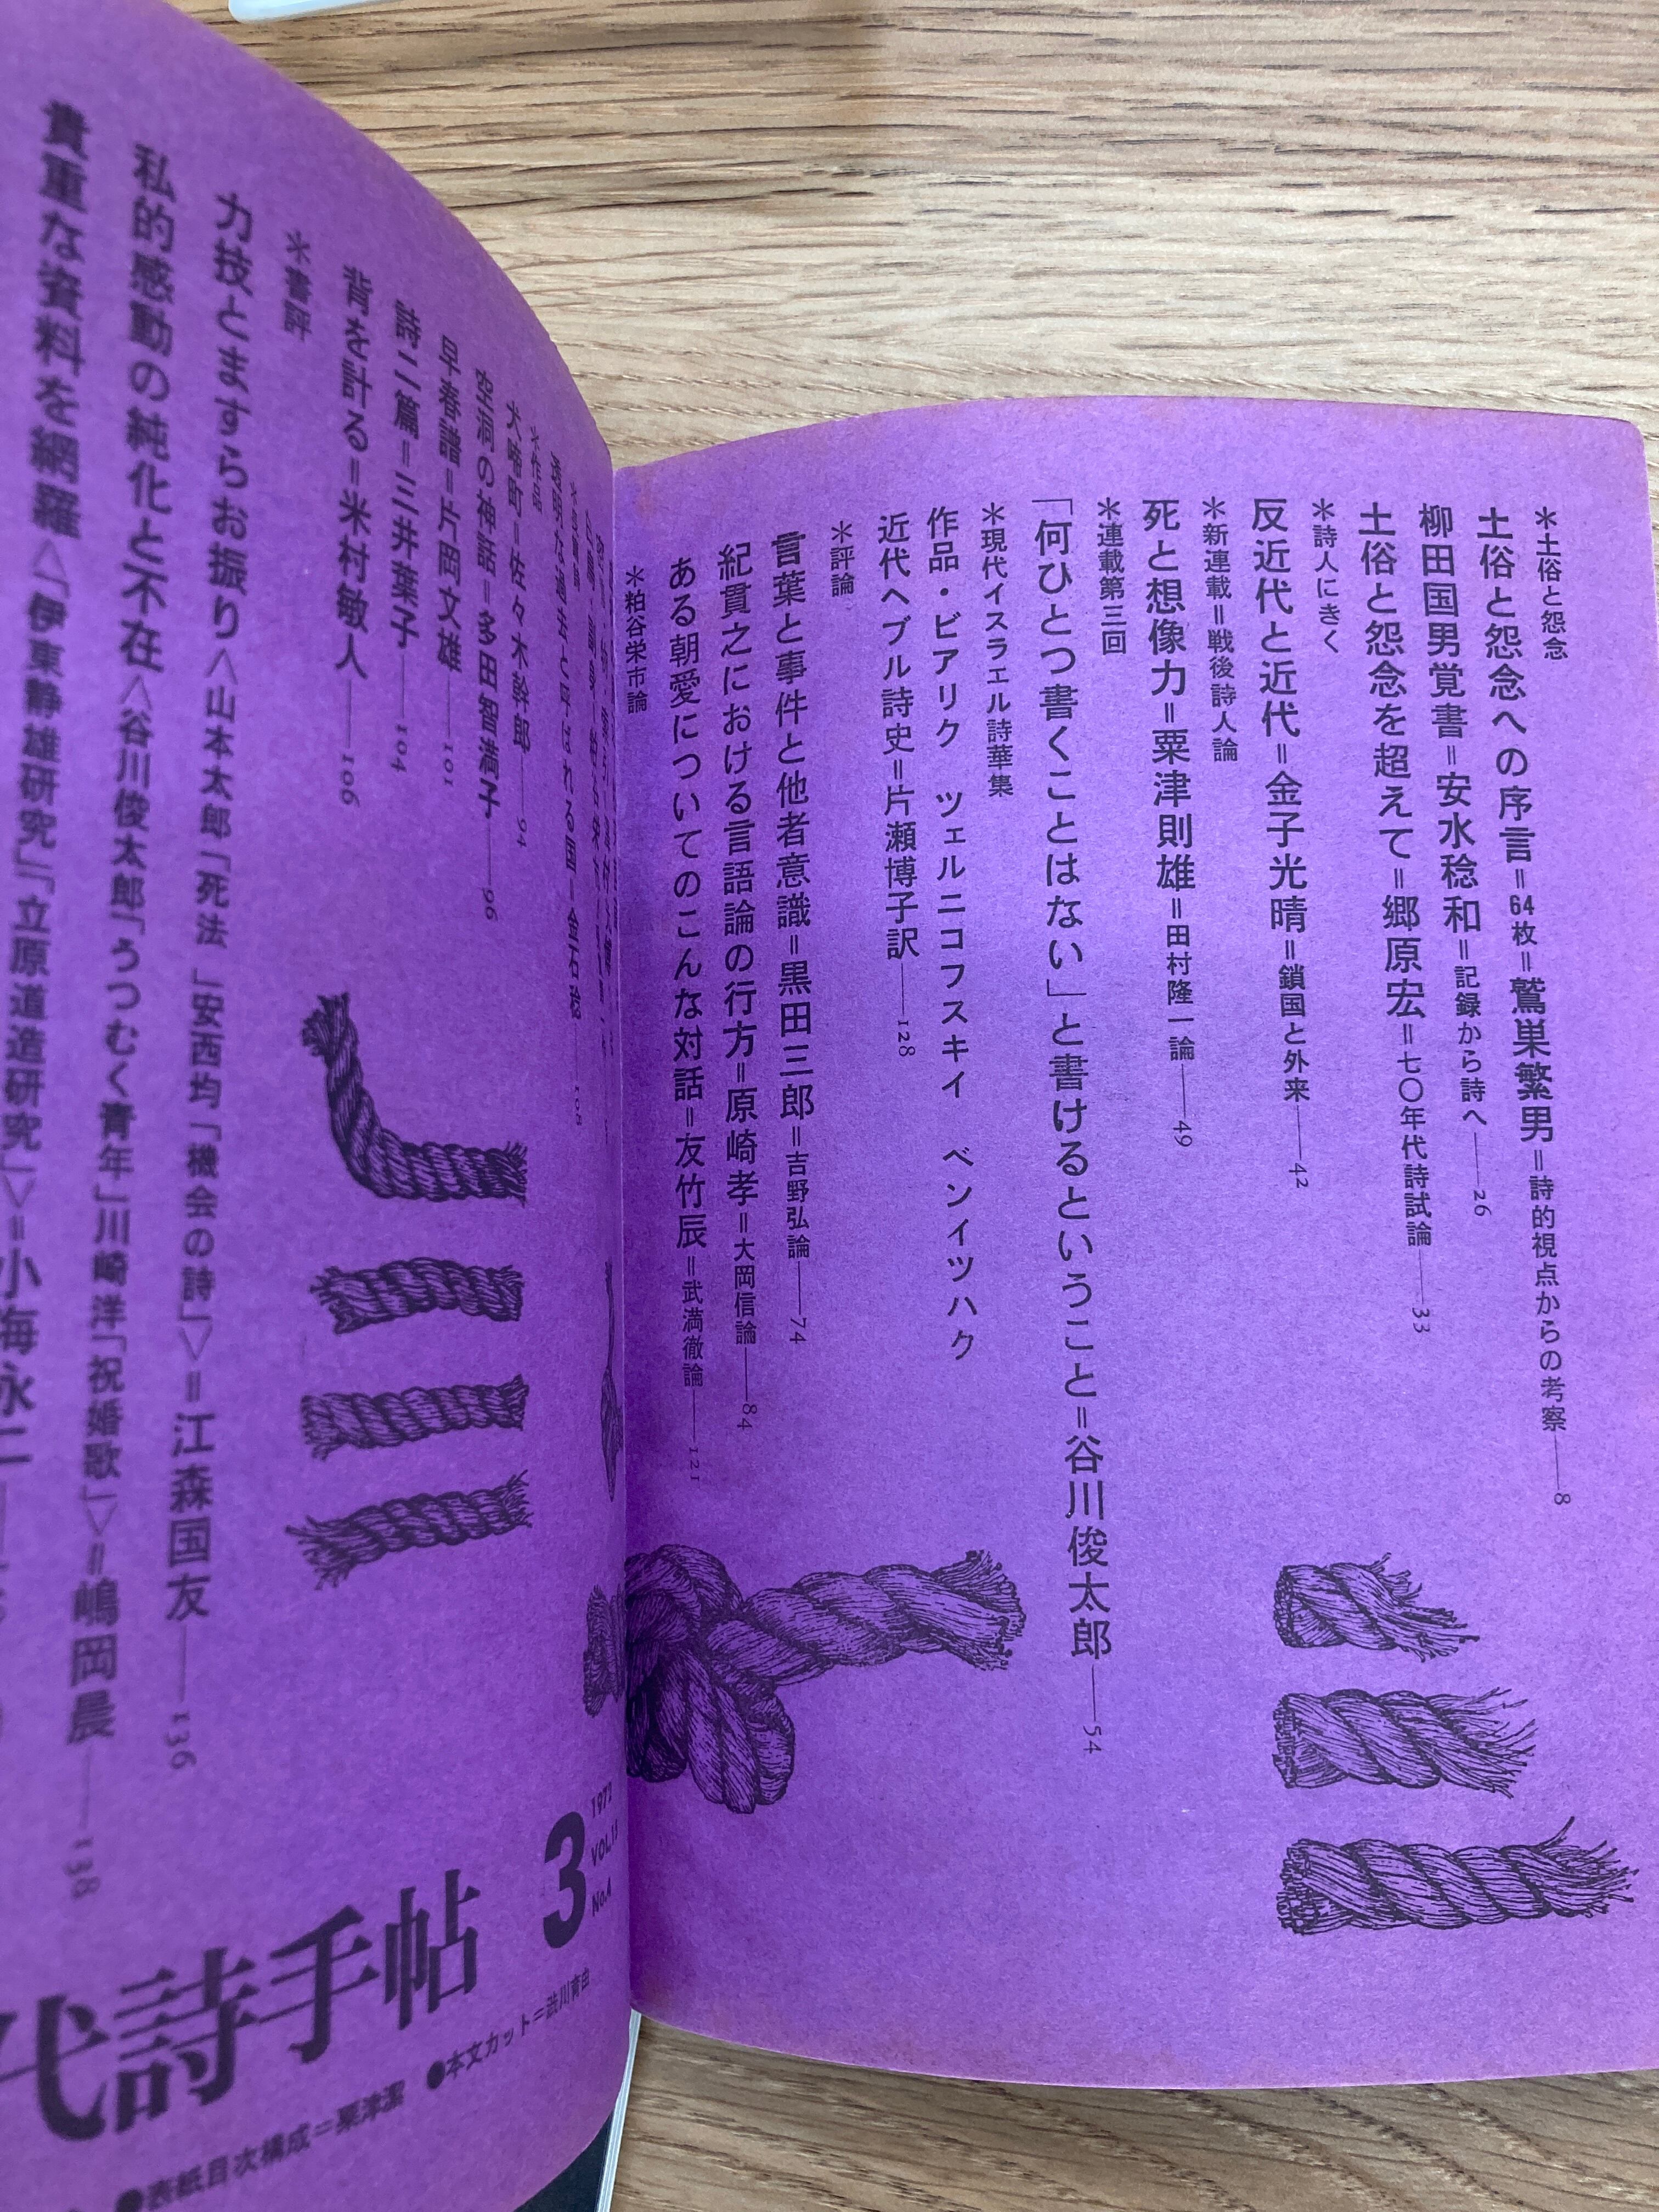 ＊土俗と怨念
土俗と怨念への序言＝64枚＝鷲巣繁男＝詩的視点からの考察——8
柳田国男覚書＝安水稔和＝記録から詩へ——26
土俗と怨念を超えて＝郷原宏＝七〇年代詩試論——33
＊詩人にきく
反近代と近代＝金子光晴＝鎖国と外来——42
＊新連載＝戦後詩人論
死と想像力＝粟津則雄＝田村隆一論——49
＊連載第三回
「何ひとつ書くことはない」と書けるということ＝谷川俊太郎——54
＊現代イスラエル詩華集
作品・ビアリク　ツェルニコフスキイ　ベンイツハク
近代ヘブル詩史＝片瀬博子訳——128
＊評論
言葉と事件と他者意識＝黒田三郎＝吉野弘論——74
紀貫之における言語論の行方＝原崎孝＝大岡信論——84
ある朝愛についてのこんな対話＝友竹辰＝武満徹論——121
＊粕谷栄市論
透明な過去と呼ばれる国＝金石稔
＊作品
犬啼町＝佐々木幹郎——94
空洞の神話＝多田智満子——96
早春譜＝片岡文雄——101
詩二篇＝三井葉子——104
背を計る＝米村敏人——106
＊書評
力技とますらお振り＜山本太郎「死法」安西均「機会の詩」＞＝江森国友——136
私的感動の純化と不在＜谷川俊太郎「うつむく青年」川崎洋「祝婚歌」＞＝嶋岡晨——138
貴重な資料を網羅＜「伊東静雄研究」「立原道造研究」＞＝小海永二
1972
VOL.15
No.4
3
代詩手帖
●本文カット＝渋川育由
●表紙目次構成＝粟津潔